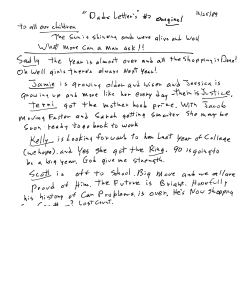 "Dads Letter's" #2 Original 11/25/89
To all our children
The Sun is shining and were alive and Well
What more can a man ask!!
Sadly the year is almost over and all the shopping is Done!
Oh Well girls there's always Next Year!
Jamie is growing older and wiser and Jessica is
growing up and more like her every day. Them is Justice.
Terri, got the mother hood prime. With Jacob
moving Faster and Sarah getting smarter she may be
Soon ready to go back to work
Kelly is looking forward to her Last Year of College
(we hope). and Yes she got the Ring. 90 is going to
be a big year. God give me strength.
Scott is off to School. Big Move and we all are
Proud of Him. The Future is Bright. Hopefully
his history of Car Problems is over. He's Now Shopping
Last Count.